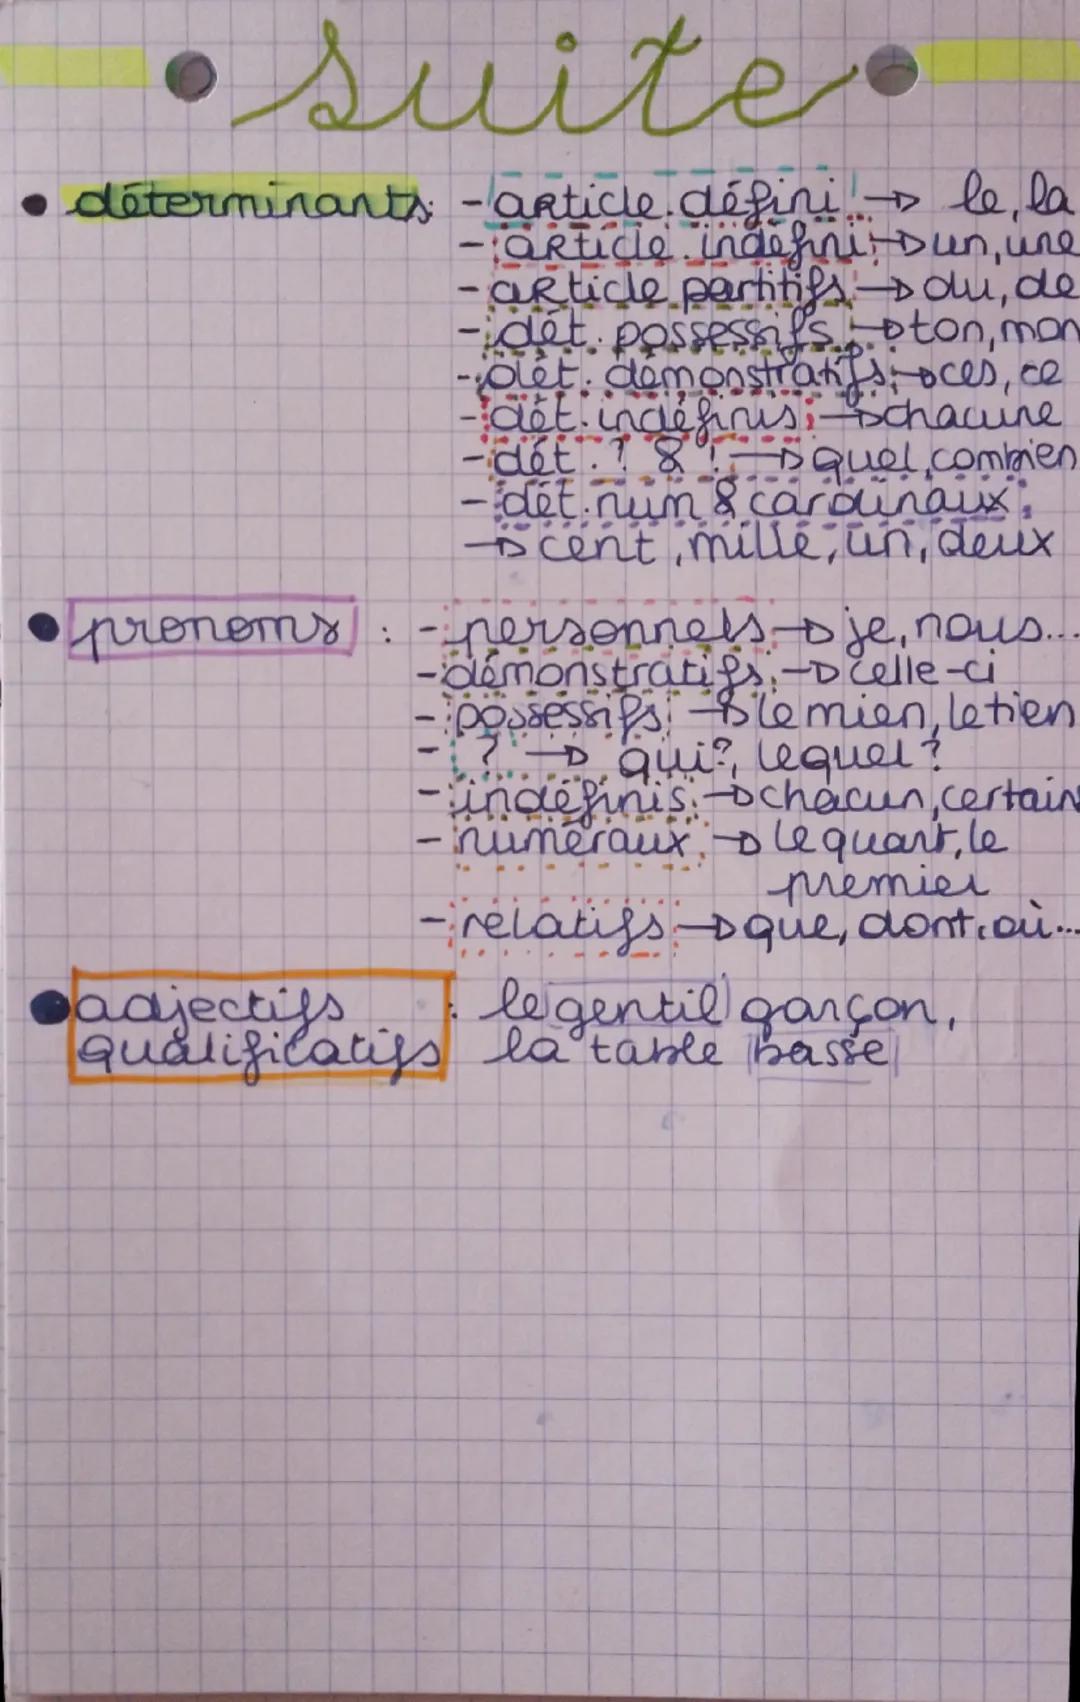 suite
• déterminants: - article défini → le, la
- article indéfini → un, une
- article partitifs → du, de
- dét. possessifs → ton, mon
- dét. démonstratifs → ces, ce
- dét. indéfinis → chacune
- dét. ? & ! → quel, combien
- dét. num & cardinaux
→ cent, mille, un, deux
• pronoms : - personnels → je, nous...
- démonstratifs → celle-ci
- possessifs → le mien, le tien
- ? → qui?, lequel?
- indéfinis → chacun, certain
- numéraux → le quart, le
premier
- relatifs → que, dont, où...
• adjectifs : le gentil garçon,
qualificatifs la table basse